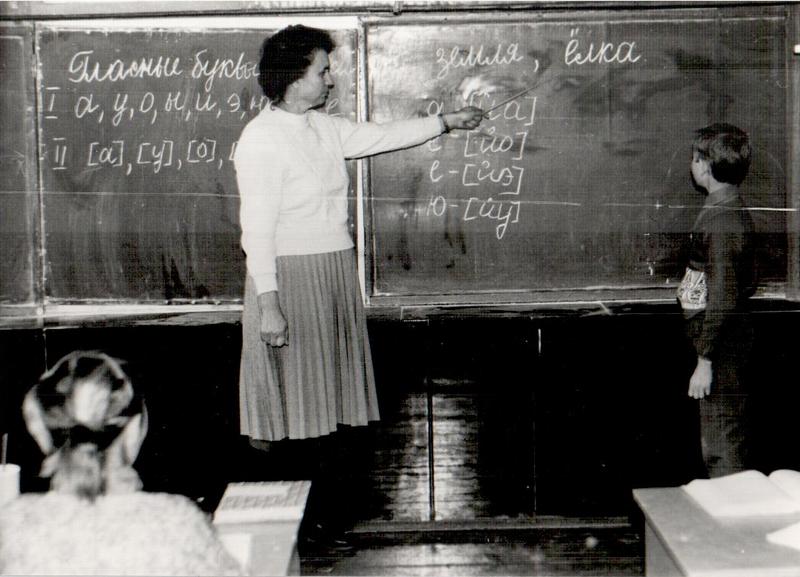 Гласные буквы
I а, у, о, ы, и, э, ю
II [а], [у], [о],
земля, ёлка
я - [йа]
ё - [йо]
е - [йэ]
ю - [йу]